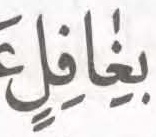 بِغٰافِلٍ